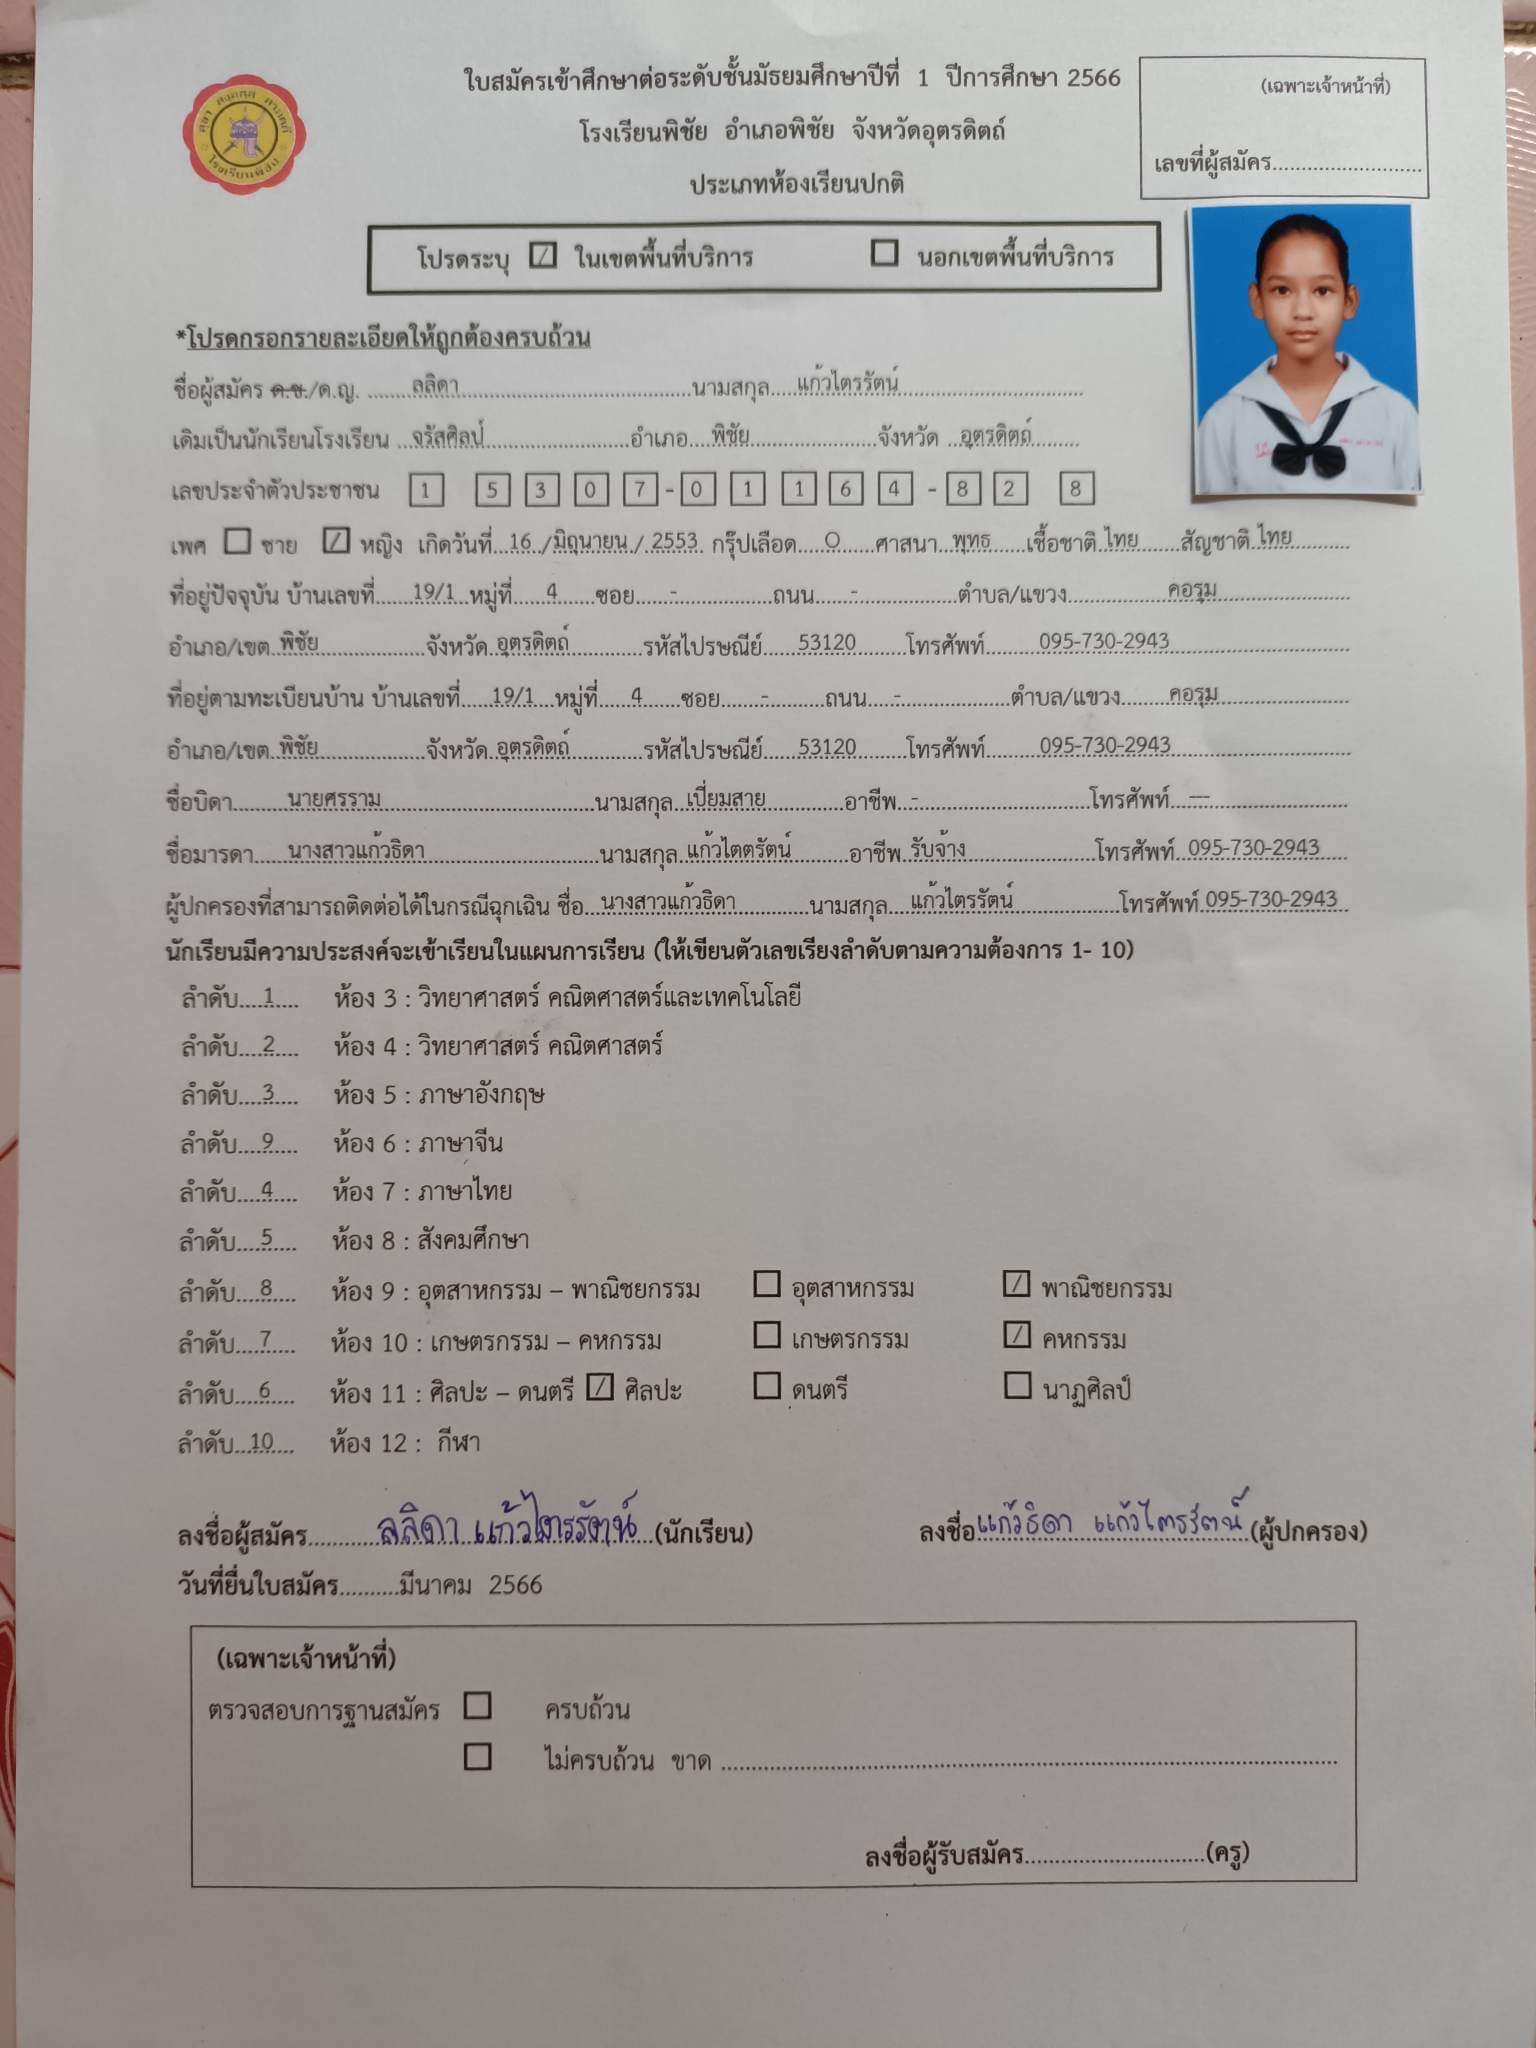 ใบสมัครเข้าศึกษาต่อระดับชั้นมัธยมศึกษาปีที่ 1 ปีการศึกษา 2566
(เฉพาะเจ้าหน้าที่)
โรงเรียนพิชัย อำเภอพิชัย จังหวัดอุตรดิตถ์
เลขที่ผู้สมัคร...........................
ประเภทห้องเรียนปกติ
โรงเรียนพิชัย
โปรดระบุ ☑ ในเขตพื้นที่บริการ ☐ นอกเขตพื้นที่บริการ
*โปรดกรอกรายละเอียดให้ถูกต้องครบถ้วน
ชื่อผู้สมัคร ด.ช./ด.ญ. ........ลลิดา........นามสกุล.....แก้วไตรรัตน์........
เดิมเป็นนักเรียนโรงเรียน ...จรัสศิลป์........อำเภอ....พิชัย........จังหวัด ..อุตรดิตถ์........
เลขประจำตัวประชาชน 1 5 3 0 7 - 0 1 1 6 4 - 8 2 8
เพศ ☐ ชาย ☑ หญิง เกิดวันที่...16../มิถุนายน./..2553..กรุ๊ปเลือด.....O.....ศาสนา..พุทธ.....เชื้อชาติ.ไทย.......สัญชาติ.ไทย........
ที่อยู่ปัจจุบัน บ้านเลขที่......19/1..หมู่ที่.....4......ซอย......-........ถนน......-........ตำบล/แขวง........คอรุม........
อำเภอ/เขต.พิชัย........จังหวัด.อุตรดิตถ์........รหัสไปรษณีย์.....53120........โทรศัพท์........095-730-2943........
ที่อยู่ตามทะเบียนบ้าน บ้านเลขที่.....19/1...หมู่ที่....4......ซอย......-........ถนน....-........ตำบล/แขวง........คอรุม........
อำเภอ/เขต.พิชัย........จังหวัด.อุตรดิตถ์........รหัสไปรษณีย์.....53120........โทรศัพท์........095-730-2943........
ชื่อบิดา........นายศรราม........นามสกุล..เปี่ยมสาย........อาชีพ..-........โทรศัพท์...---........
ชื่อมารดา.....นางสาวแก้วธิดา........นามสกุล.แก้วไตตรัตน์........อาชีพ.รับจ้าง........โทรศัพท์..095-730-2943....
ผู้ปกครองที่สามารถติดต่อได้ในกรณีฉุกเฉิน ชื่อ...นางสาวแก้วธิดา........นามสกุล....แก้วไตรรัตน์........โทรศัพท์.095-730-2943..
นักเรียนมีความประสงค์จะเข้าเรียนในแผนการเรียน (ให้เขียนตัวเลขเรียงลำดับตามความต้องการ 1- 10)
ลำดับ....1..... ห้อง 3 : วิทยาศาสตร์ คณิตศาสตร์และเทคโนโลยี
ลำดับ....2..... ห้อง 4 : วิทยาศาสตร์ คณิตศาสตร์
ลำดับ....3..... ห้อง 5 : ภาษาอังกฤษ
ลำดับ....9..... ห้อง 6 : ภาษาจีน
ลำดับ....4..... ห้อง 7 : ภาษาไทย
ลำดับ....5..... ห้อง 8 : สังคมศึกษา
ลำดับ....8..... ห้อง 9 : อุตสาหกรรม – พาณิชยกรรม ☐ อุตสาหกรรม ☑ พาณิชยกรรม
ลำดับ....7..... ห้อง 10 : เกษตรกรรม – คหกรรม ☐ เกษตรกรรม ☑ คหกรรม
ลำดับ....6..... ห้อง 11 : ศิลปะ – ดนตรี ☑ ศิลปะ ☐ ดนตรี ☐ นาฏศิลป์
ลำดับ...10.... ห้อง 12 : กีฬา
ลงชื่อผู้สมัคร........ลลิดา แก้วไตรรัตน์...(นักเรียน) ลงชื่อ แก้วธิดา แก้วไตรรัตน์ (ผู้ปกครอง)
วันที่ยื่นใบสมัคร..........มีนาคม 2566
(เฉพาะเจ้าหน้าที่)
ตรวจสอบการฐานสมัคร ☐ ครบถ้วน
☐ ไม่ครบถ้วน ขาด ................................................
ลงชื่อผู้รับสมัคร..............................(ครู)